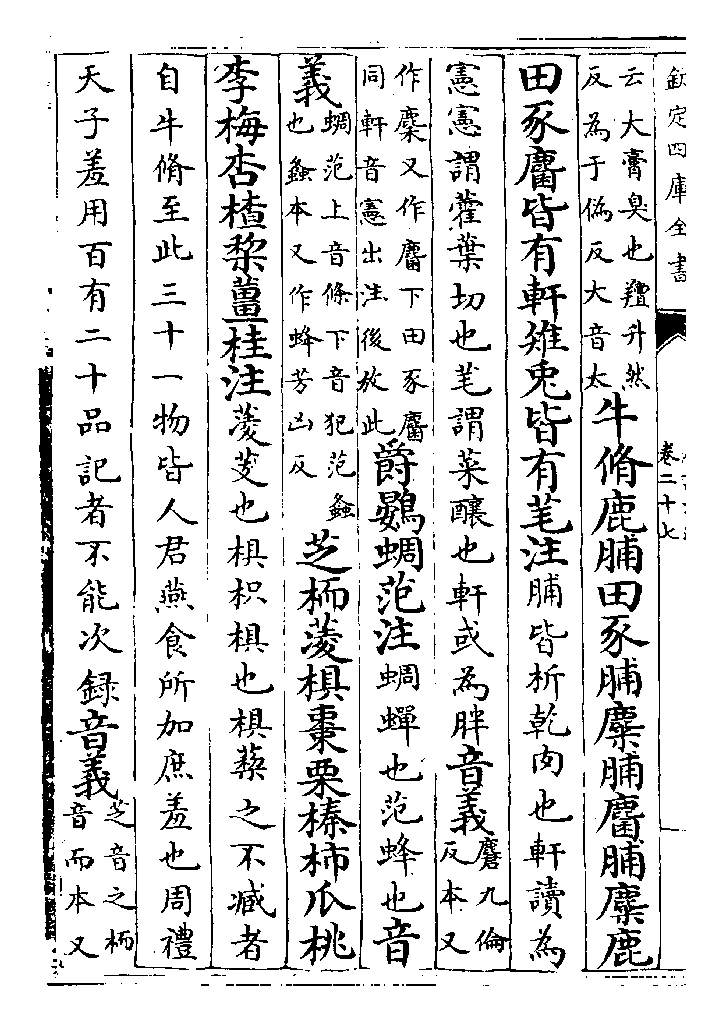 欽定四庫全書
卷二十七
云大膏臭也羶升然
反為于偽反大音太
牛脩鹿脯田豕脯麋脯麕脯麋鹿
田豕麕皆有軒雉兎皆有芼注脯皆析乾肉也軒讀為
憲憲謂藿葉切也芼謂菜釀也軒或為胖音義
麕九倫
反本又
作麇又作麕下田豕麕
同軒音憲出注後放此
爵鷃蜩范注蜩蟬也范蜂也音
義
蜩范上音條下音犯范螽
也螽本又作蜂芳凶反
芝栭蔆椇棗栗榛柿瓜桃
李梅杏楂棃薑桂注蔆芰也椇枳椇也椇藜之不臧者
自牛脩至此三十一物皆人君燕食所加庶羞也周禮
天子羞用百有二十品記者不能次錄音義
芝音之栭
音而本又